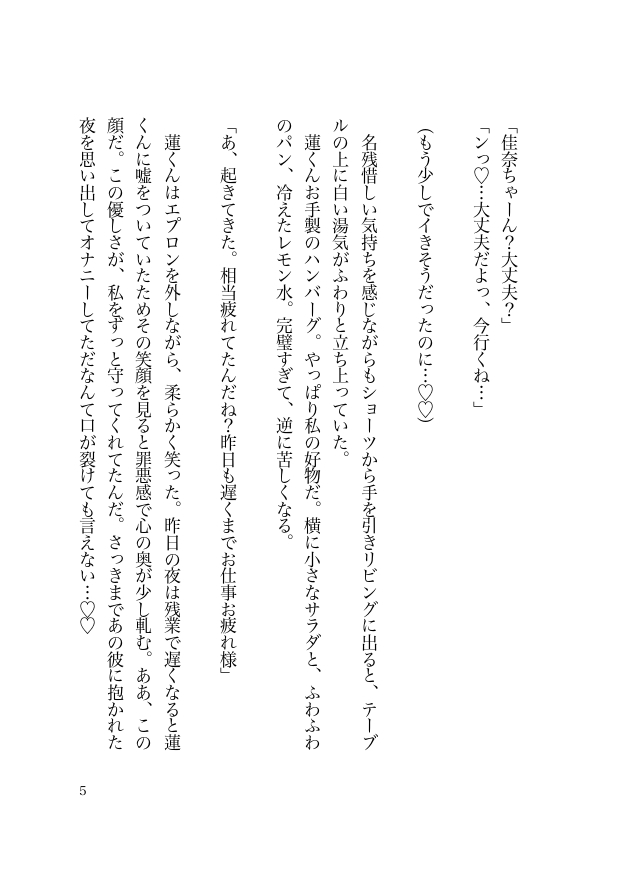 「佳奈ちゃーん？大丈夫？」
「ンっ♡…大丈夫だよっ、今行くね…」
（もう少しでイきそうだったのに…♡♡）
名残惜しい気持ちを感じながらもショーツから手を引きリビングに出ると、テーブ
ルの上に白い湯気がふわりと立ち上っていた。
蓮くんお手製のハンバーグ。やっぱり私の好物だ。横に小さなサラダと、ふわふわ
のパン、冷えたレモン水。完璧すぎて、逆に苦しくなる。
「あ、起きてきた。相当疲れてたんだね？昨日も遅くまでお仕事お疲れ様」
蓮くんはエプロンを外しながら、柔らかく笑った。昨日の夜は残業で遅くなると蓮
くんに嘘をついていたためその笑顔を見ると罪悪感で心の奥が少し軋む。ああ、この
顔だ。この優しさが、私をずっと守ってくれてたんだ。さっきまであの彼に抱かれた
夜を思い出してオナニーしてただなんて口が裂けても言えない…♡♡
5